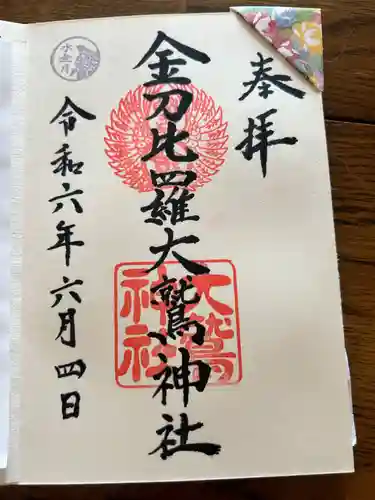 奉拝
金刀比羅大鷲神社
大鷲神社
令和六年六月四日
水無月